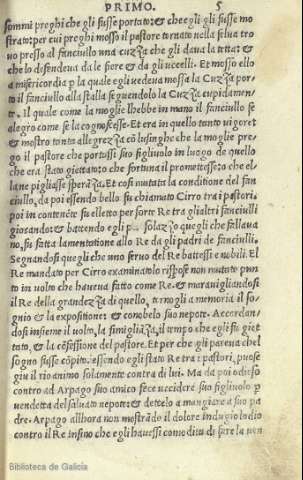 PRIMO. 5
sommi preghi che gli fusse portato: & che egli gli fusse mo
strato: per cui preghi mosso il pastore tornato nella selua tro
uo presso al fanciullo una cuzza che gli daua la tetta: &
che lo defendeua da le fiere & da gli uccelli. Et mosso ello
a misericordia p la quale egli uedeua mossa la Cuzza por
to il fanciullo alla stalla seguendolo la Cuzza cupidamen
te. Il quale come la moglie lhebbe in mano il fanciullo se
alegro come se la cognoscesse. Et era in quello tanto uigore:
& mostro tanta allegrezza cō lusinghe che la moglie pre
go il pastore che portassi suo figliuolo in luogo de quello
che era stato giettato: o che fortuna il promettesse: o che el
la ne pigliasse speraza. Et cosi mutata la conditione del fan
ciullo, da poi essendo bello fu chiamato Cirro tra i pastori,
poi in contenente fu eletto per sorte Re tra gli altri fanciulli
giocando: & battendo egli p solazzo quegli che fallaua
no, fu fatta lamentatione allo Re da gli padri de fanciulli.
Segnandosi quegli che uno seruo del Re battessi e nobili. El
Re mandato per Cirro examinatolo rispose non mutato pun
to in uolto che haueua fatto come Re. & marauigliandosi
il Re della grandezza di quello, tornogli a memoria il so
gnio & la expositione: & conobbelo suo nepote. Accordan
dosi insieme il uolto, la simigliaza, il tempo che egli fu giet
tato, & la cōfessione del pastore. Et per che gli pareua chel
sogno fusse cōpito, essendo egli stato Re tra i pastori, puose
giu il rio animo solamente contra di lui. Ma da poi odioso
contro ad Arpago suo amico fece uccidere suo figliuolo p
uendetta del saluato nepote: & dettelo a mangiare a suo pa
dre. Arpago allhora non mostrādo il dolore indugio lodio
contro il Re insino che egli hauessi comodita di fare la uen
Biblioteca de Galicia